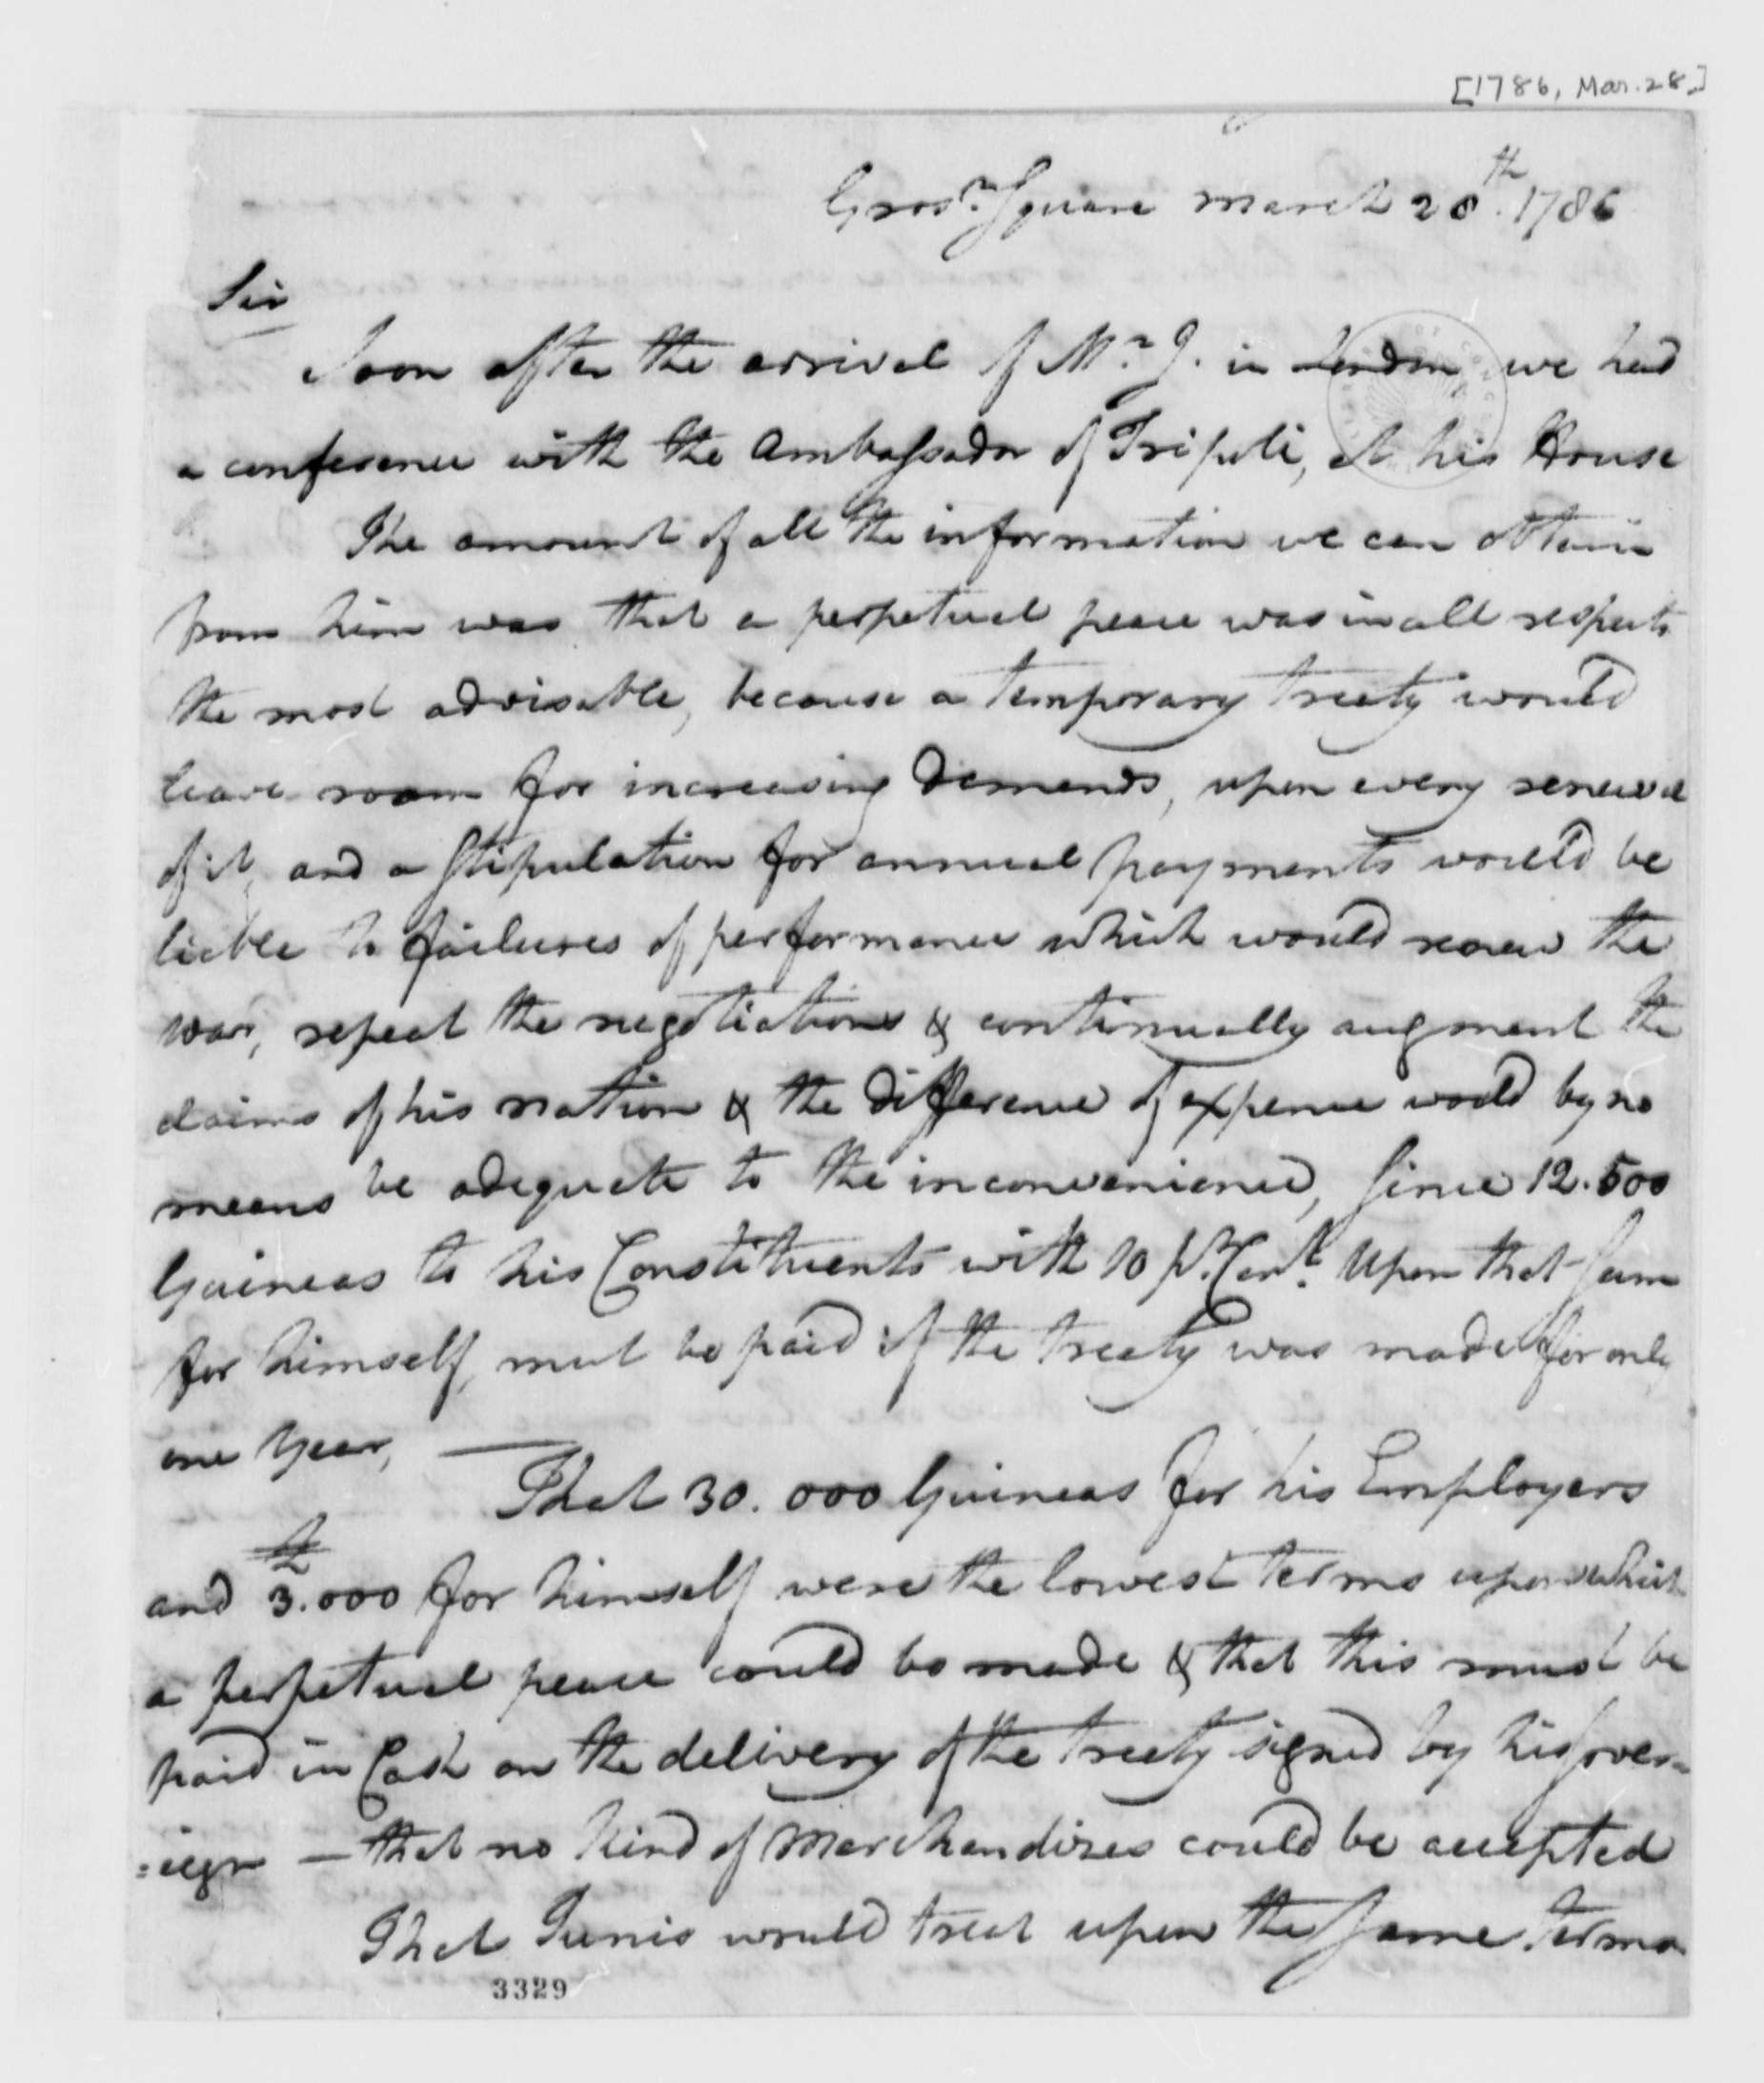 [1786, Mar. 28.]
Grosr. Square March 28th. 1786
Sir
Soon after the arrival of Mr. J. in London we had
a conference with the Ambassador of Tripoli, at his House
The amount of all the information we can obtain
from him was that a perpetual peace was in all respects
the most advisable, because a temporary treaty would
leave room for increasing demands, upon every renewal
of it, and a Stipulation for annual payments would be
liable to failures of performance which would renew the
war, repeat the negotiations & continually augment the
claims of his nation & the difference of expence would by no
means be adequate to the inconvenience, Since 12.500
Guineas to his Constituents with 10 pr. Cent. Upon that Sum
for himself, must be paid if the treaty was made for only
one Year,
— That 30.000 Guineas for his Employers
and 3.000 for himself were the lowest terms upon which
a perpetual peace could be made & that this must be
paid in Cash on the delivery of the treaty signed by his sover=
=eign — that no kind of Merchandizes could be accepted
That Tunis would treat upon the Same terms
3329